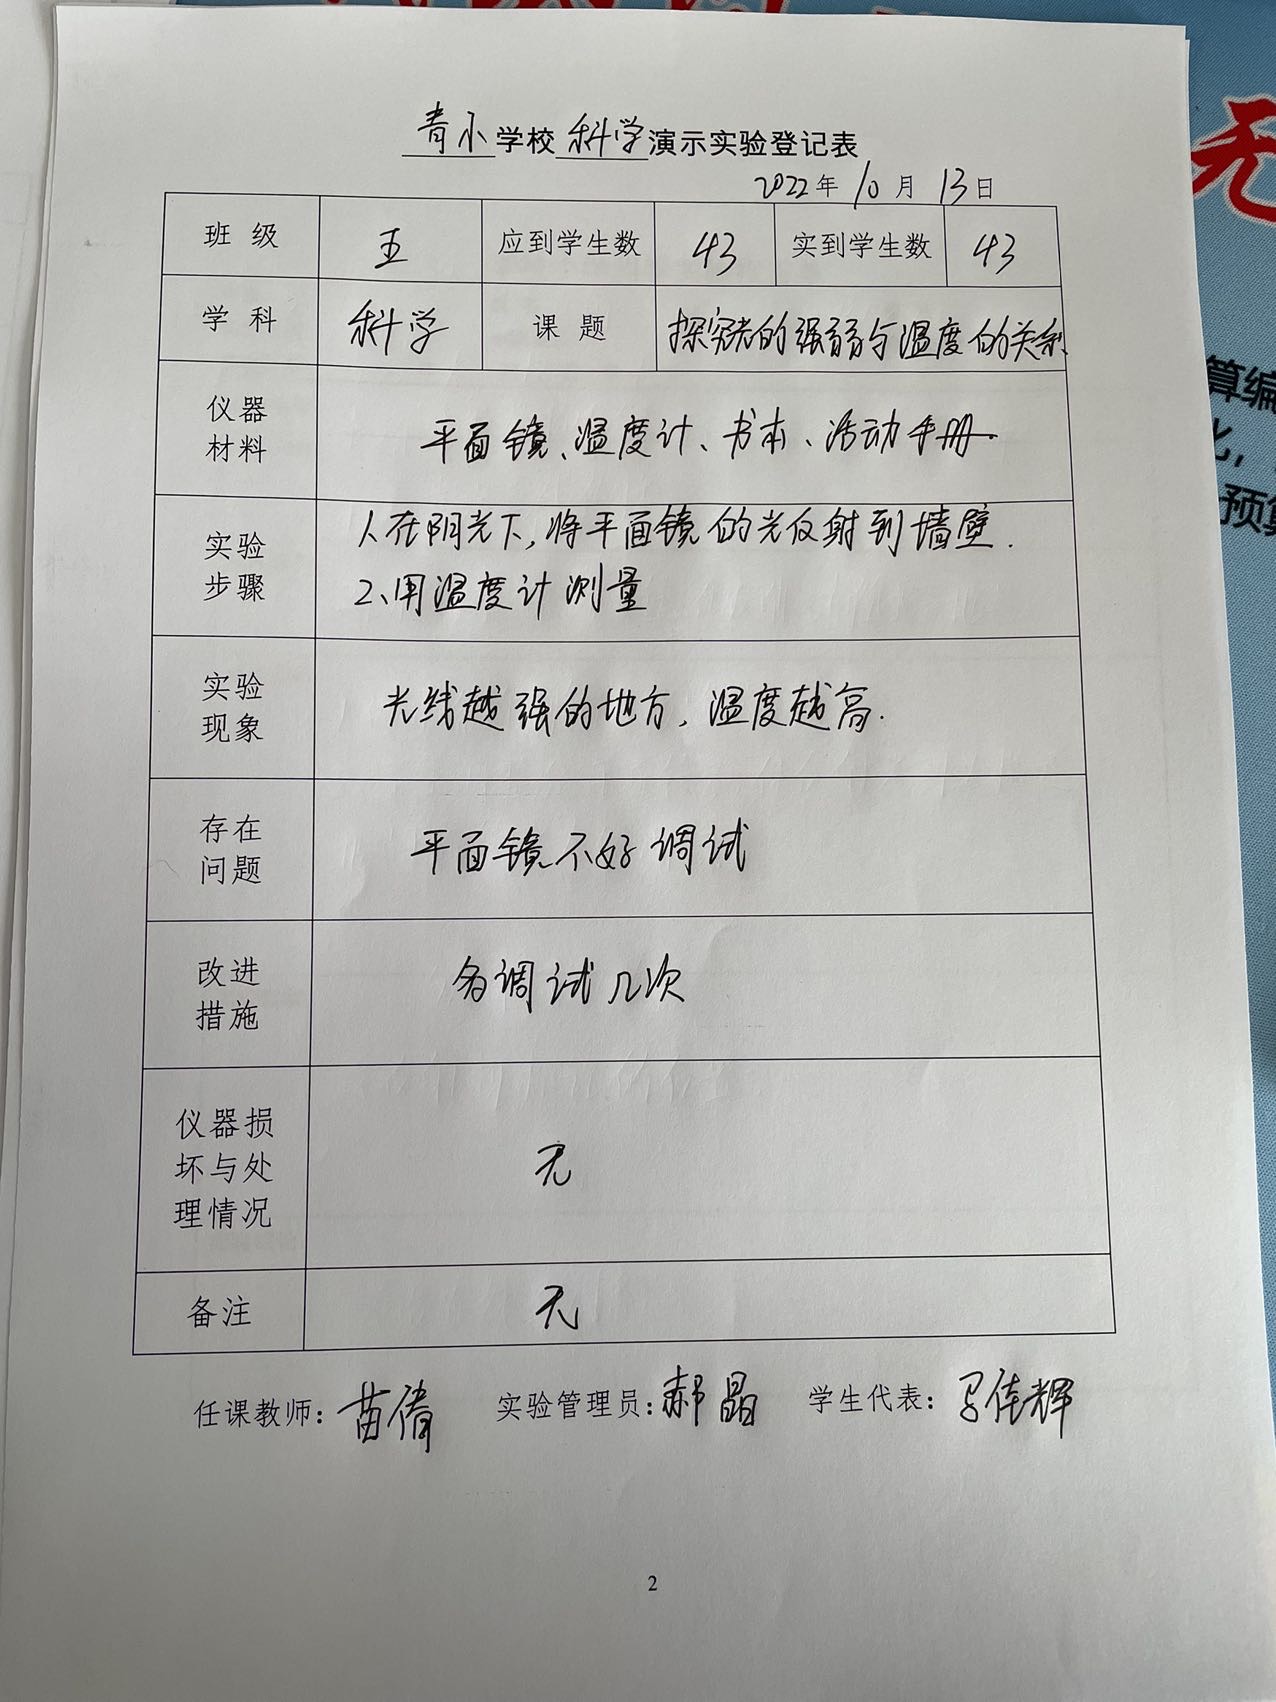 青小学校科学演示实验登记表
2022年10月13日
班级 五 应到学生数 43 实到学生数 43
学科 科学 课题 探究光的强弱与温度的关系
仪器
材料
平面镜、温度计、书本、活动手册.
实验
步骤
1、在阳光下,将平面镜的光反射到墙壁.
2、用温度计测量
实验
现象
光线越强的地方,温度越高.
存在
问题
平面镜不好调试
改进
措施
多调试几次
仪器损
坏与处
理情况
无
备注 无
任课教师:苗倩 实验管理员:郝晶 学生代表:马佳辉
2
无
算编
化,
预算